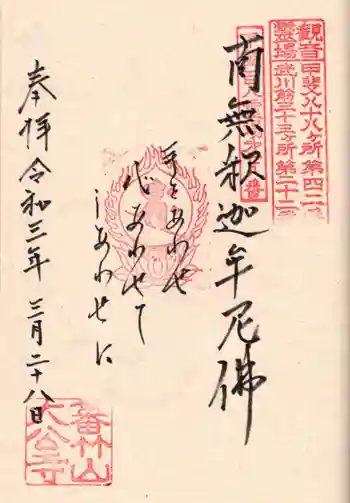 観音甲斐八十八ヶ所第四二
霊場武川筋三十三ヶ所第二十二
南無釈迦牟尼佛
手をあわせ
心あわせて
しあわせに
奉拝 令和三年 三月二十八日
大公寺